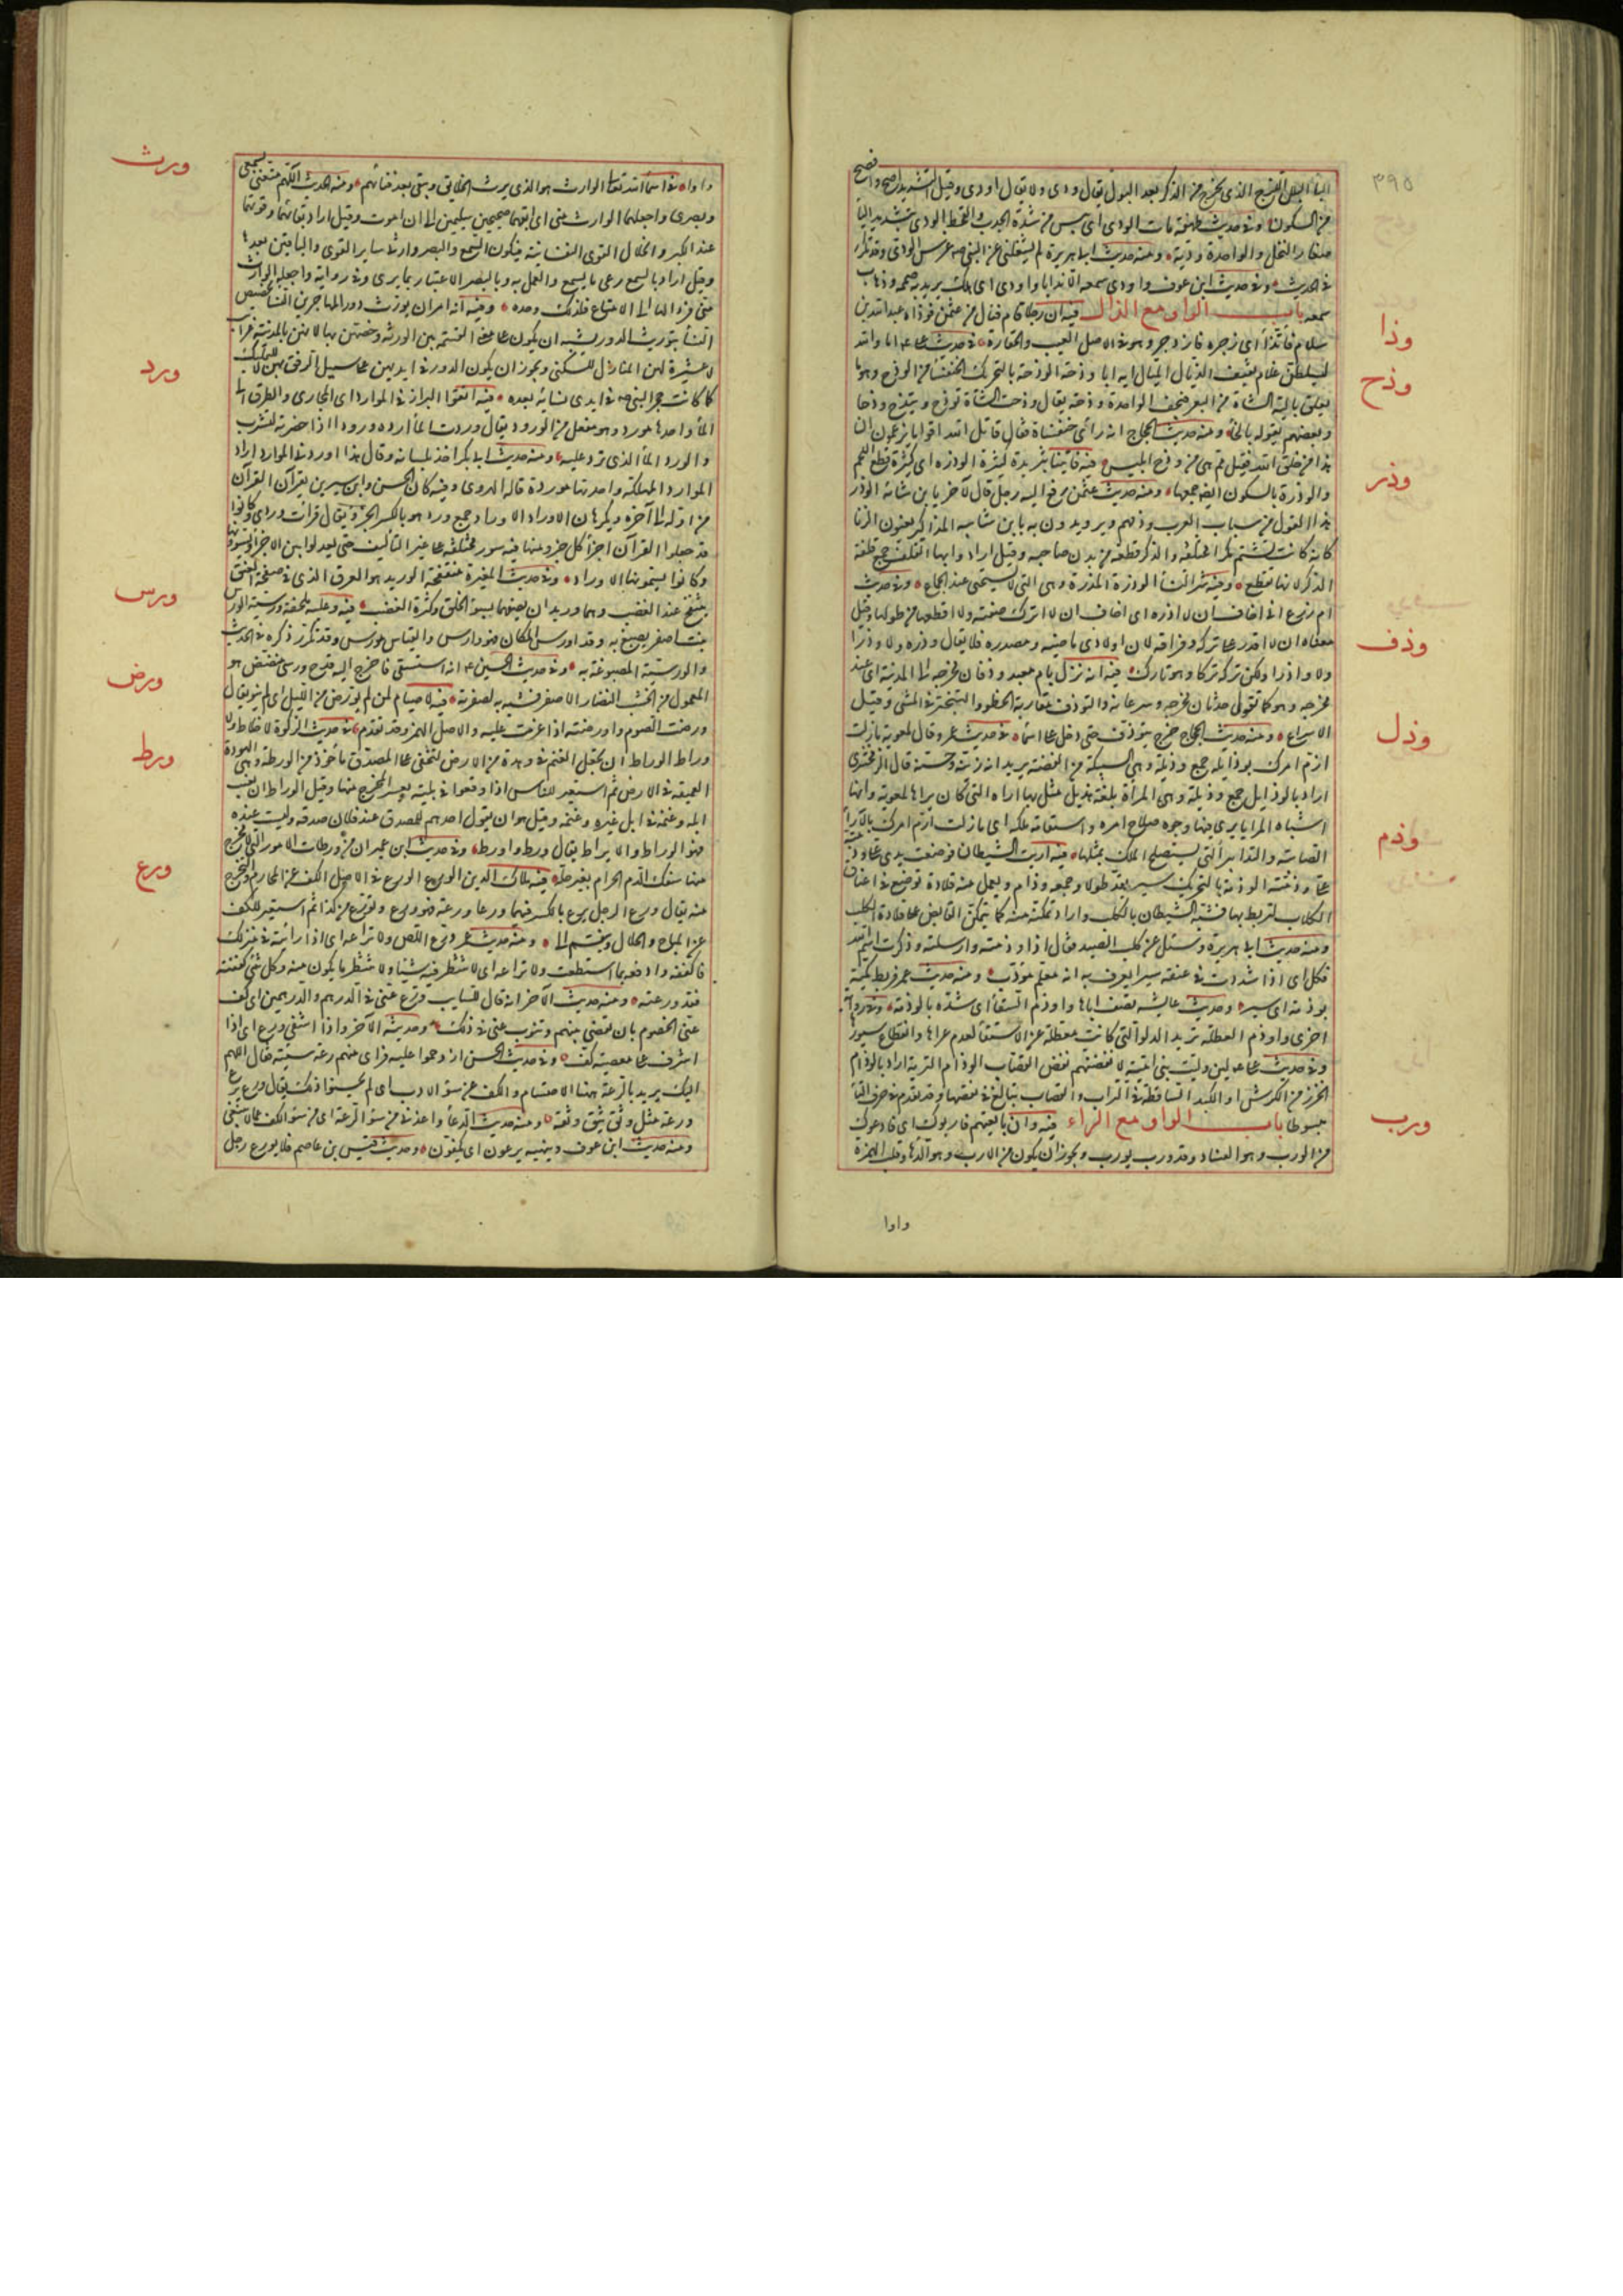 ٣٩٥
الياء البلل اللزج الذي يخرج من الذكر بعد البول يقال ودى ولا يقال اودى وقيل التشديد اصح وافصح
من السكون وفي حديث طهفة مات الودي اي يبس من شدة الجدب والقحط الودي بتشديد الياء
صغار النخل والواحدة ودية ومنه حديث ابي هريرة لم يشغلني عن النبي صم غرس الودي وقد تكرر
في الحديث وفي حديث ابن عوف واودى سمعه الا ندايا واودى اي هلك يريد به صممه وذهاب
سمعه باب الواو مع الذال فيه ان رجلا قام فنال من عثمن فوذاه عبد الله بن
سلام فاتذأ اي زجره فازدجر وهو في الاصل العيب والحقارة في حديث علي اما والله
ليسلطن غلام ثقيف الذيال الميال ايه ابا وذحة الوذحة بالتحريك الخنفساء من الوذح وهو ما
يعلق بالية الشاة من البعر فيجف الواحدة وذحة يقال وذحت الشاة توذح وتيذح وذحا
وبعضهم يقوله بالخاء ومنه حديث الحجاج انه رأى خنفساة فقال قاتل الله اقواما يزعمون ان
هذا من خلق الله فقيل مم هي من وذح ابليس فيه فاتينا بثريدة كثيرة الوذر اي كثيرة قطع اللحم
والوذرة بالسكون ومنه حديث عثمن رفع اليه رجل قال لآخر يا بن شامة الوذر
هذا القول من سباب العرب وذمهم ويريدون به يا بن شامة المذاكير يعنون الزنا
كانها كانت تشم كمرا مختلفة والذكر قطعة من بدن صاحبه وقيل اراد وابها القلف جمع قلفة
الذكر لانها تقطع ومنه شر النساء الوذرة المذرة وهي التي لا تستحيي عند الجماع وفي حديث
ام زرع اني اخاف ان لا اذره اي اخاف ان لا اترك صفته ولا اقطعها من طولها وقيل
معناه ان لا اقدر على تركه وفراقه لان اولادي ماضيه ومصدره فلا يقال وذره ولا وذرا
ولا واذرا ولكن تركه تركا وهو تارك فيه انه نزل بام معبد وذفان مخرجه الى المدينة اي عند
مخرجه وهو كما تقول حدثان مخرجه وسرعانه والتوذف مقاربة الخطو والتبختر في المشي وقيل
الاسراع ومنه حديث الحجاج خرج يتوذف حتى دخل على اسماء في حديث عمرو قال لمعوية ما زلت
ارم امرك بوذايله جمع وذيلة وهي السبيكة من الفضة يريد انه زينه وحسنه قال الزمخشري
اراد بالوذايل جمع وذيلة وهي المرآة بلغة هذيل مثل بها اراءه التي كان يراها لمعوية وانها
اشباه المرايا يرى فيها وجوه صلاح امره واستقامة ملكه اي ما زلت ارم امرك بالآراء
الصائبة والتدابير التي يستصلح الملك بمثلها فيه اريت الشيطان فوضعت يدي على وذمته
الوذمة بالتحريك سير يقد طولا وجمعه وذام ويعمل منه قلادة توضع في اعناق
الكلاب لتربط بها فشبه الشيطان بالكلب واراد تمكنه منه كما يتمكن القابض على قلادة الكلب
ومنه حديث ابي هريرة وسئل عن كلب الصيد فقال اذا وذمته وارسلته وذكرت اسم الله
فكل اي اذا شددت في عنقه سيرا يعرف به انه معلم مؤدب ومنه حديث عمر فربط كميه
بوذمة اي سير وحديث عايشه تصف اباها واوذم السقاء اي شده بالوذمة وفي رواية
اخرى واوذم العطلة تريد الدلو التي كانت معطلة عن الاستقاء لعدم عراها وانقطاع سيورها
وفي حديث علي لين وليت بني امية لانفضنهم نفض القصاب الوذام التربة اراد بالوذام
الحزز من الكرش او الكبد الساقطة في التراب والقصاب يبالغ في نفضها وقد تقدم في حرف التاء
مبسوطا باب الواو مع الراء فيه وان بايعتهم واربوك اي خادعوك
من الورب وهو الفساد وقد ورب يورب ويجوز ان يكون من الارب وهو الدهاء وقلب الهمزة
واوا
وذا
وذح
وذر
وذف
وذل
وذم
ورب
واوا في اسماء الله تعالى الوارث هو الذي يرث الخلايق ويبقى بعد فنائهم ومنه الحديث اللهم متعني بسمعي
وبصري واجعلهما الوارث مني اي ابقهما صحيحين سليمين الى ان اموت وقيل اراد بقائهما وقوتهما
عند الكبر وانحلال القوى النفسانية فيكون السمع والبصر وارثي ساير القوى والباقيين بعدها
وقيل اراد بالسمع وعي ما يسمع والعمل به وبالبصر الاعتبار بما يرى وفي رواية واجعله الوارث
مني فرد الهاء الى الامتاع فلذلك وحده وفيه انه امر ان يورث دور المهاجرين النساء تخصيص
النساء بتوريث الدور يشبه ان يكون على معنى القسمة بين الورثة وخصهن بها لانهن بالمدينة غرايب
لا عشيرة لهن المنازل للسكنى ويجوز ان يكون الدور في ايديهن على سبيل الرفق بهن لا للتمليك
كما كانت حجر النبي صم في ايدي نسائه بعده فيه اتقوا البراز في الموارد اي المجاري والطرق الى
الماء واحدها مورد وهو مفعل من الورود يقال وردت الماء ارده ورودا اذا حضرته لتشرب
والورد الماء الذي ترد عليه ومنه حديث ابي بكر اخذ بلسانه وقال هذا اوردني الموارد اراد
الموارد المهلكة واحدتها موردة قاله الهروي وفيه كان الحسن وابن سيرين يقرآن القرآن
من اوله الى آخره ويكرهان الاوراد الاوراد جمع ورد وهو بالكسر الجزء يقال قرات وردي وكانوا
قد جعلوا القرآن اجزاء كل جزء منها فيه سور مختلفة على غير التأليف حتى يعدلوا بين الاجزاء ويسووها
وكانوا يسمونها الاوراد وفي حديث المغيرة منتفخة الوريد هو العرق الذي في صفحة العنق
ينتفخ عند الغضب وهما وريدان يصفها بسوء الخلق وكثرة الغضب فيه وعليه ملحفة ورسية الورس
نبت اصفر يصبغ به وقد اورس المكان فهو وارس والقياس مورس وقد تكرر ذكره في الحديث
والورسية المصبوغة به وفي حديث الحسين انه استسقى فاخرج اليه قدح ورسي مفضض هو
المعمول من الخشب النضار الاصفر فشبه به لصفرته فيه لا صيام لمن لم يورض من الليل اي لم ينو يقال
ورضت الصوم وارضته اذا عزمت عليه والاصل الهمز وقد تقدم في حديث الزكوة لا خلاط ولا
وراط الوراط ان تجعل الغنم في وهدة من الارض لتخفى على المصدق مأخوذ من الورطة وهي الهوة
العميقة في الارض ثم استعير للناس اذا وقعوا في بلية يعسر المخرج منها وقيل الوراط ان يغيب
ابله وغنمه في ابل غيره وغنمه وقيل هو ان يقول احدهم للمصدق عند فلان صدقة وليست عنده
فهو الوراط والايراط يقال ورط واورط وفي حديث ابن عمر ان من ورطات الامور التي لا مخرج
منها سفك الدم الحرام بغير حله فيه ملاك الدين الورع الورع في الاصل الكف عن المحارم والتحرج
منه يقال ورع الرجل يرع بالكسر فيهما ورعا ورعة فهو ورع وتورع من كذا ثم استعير للكف
عن المباح والحلال وينقسم الى ومنه حديث عمر ورع اللص ولا تراعه اي اذا رأيته في منزلك
فاكففه وادفعه بما استطعت ولا تراعه اي لا تنتظر فيه شيئا ولا تنتظر ما يكون منه وكل شيء كففته
فقد ورعته ومنه حديثه الآخر انه قال للسايب ورع عني في الدرهم والدرهمين اي كف
عني الخصوم بان تقضي بينهم وتنوب عني في ذلك وحديثه الآخر واذا اشفى ورع اي اذا
اشرف على معصية كف وفي حديث الحسن ازدحموا عليه فراى منهم رعة سيئة فقال اللهم
اليك يريد بالرعة ههنا الاحتشام والكف عن سوء الادب اي لم يحسنوا ذلك يقال ورع يرع
رعة مثل وثق يثق وثقة ومنه حديث الدعاء واعذني من سوء الرعة اي من سوء الكف عما لا ينبغي
ومنه حديث ابن عوف وبنهيه يرعون اي يكفون وحديث قيس بن عاصم فلا يورع رجل
ورث
ورد
ورس
ورض
ورط
ورع